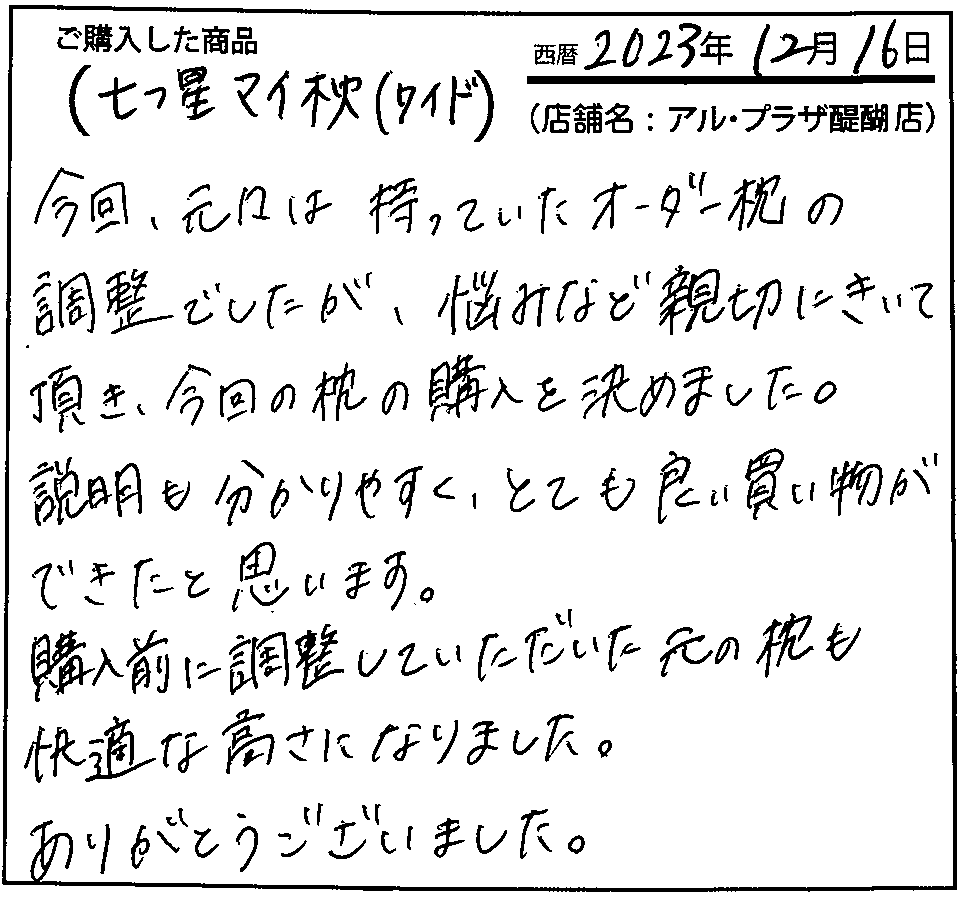 ご購入した商品
西暦 2023年 12月 16日
(七つ星マイ枕(ワイド)
(店舗名：アル・プラザ醍醐店)
今回、元々は 持っていたオーダー枕の
調整でしたが、悩みなど親切にきいて
頂き、今回の枕の購入を決めました。
説明も分かりやすく、とても良い買い物が
できたと思います。
購入前に調整していただいた元の枕も
快適な高さになりました。
ありがとうございました。